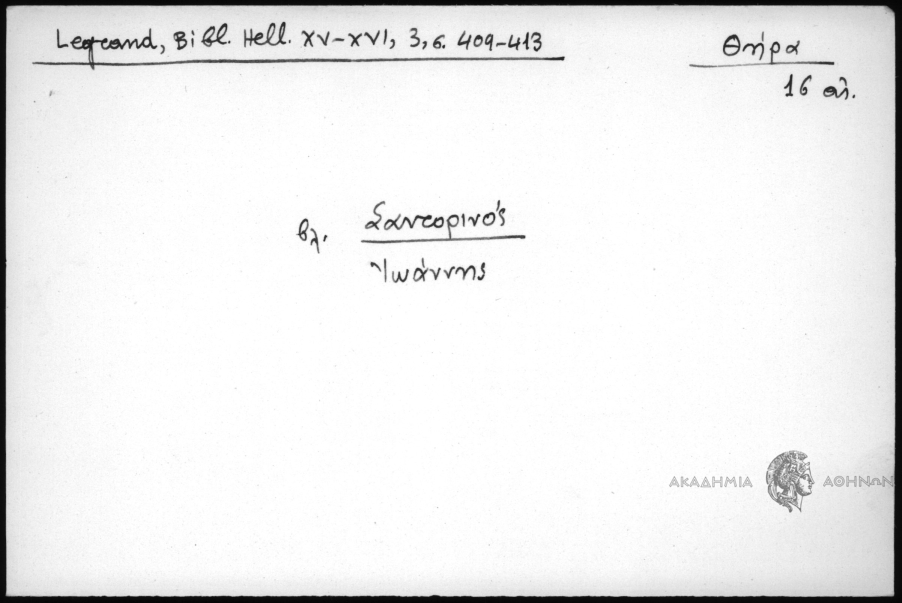 Legrand, Bibl. Hell. XV-XVI, 3, σ. 409-413
Θήρα
16 αἰ.
βλ. Σαντορινός
Ἰωάννης
ΑΚΑΔΗΜΙΑ ΑΘΗΝΩΝ